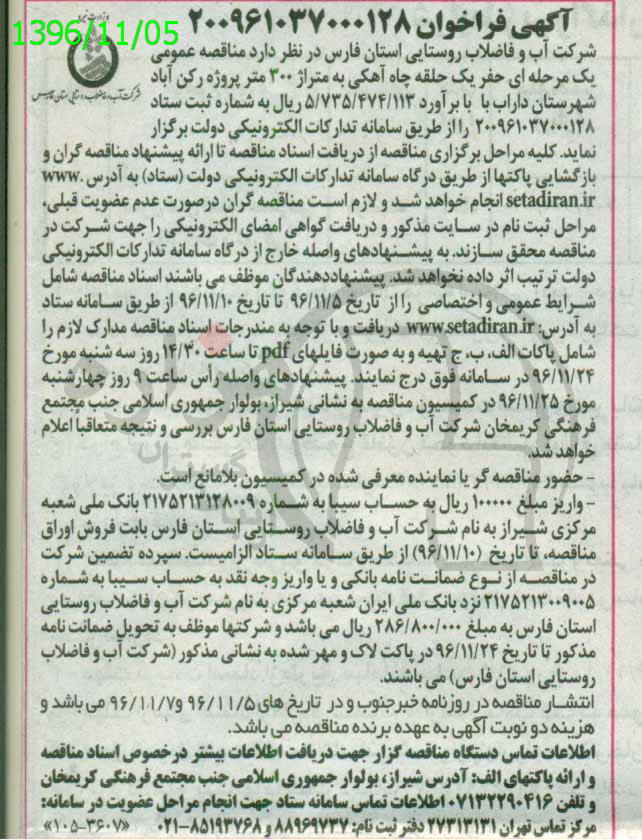 1396/11/05
آگهی فراخوان ۲۰۰۹۶۱۰۳۷۰۰۰۱۲۸
وزارت نیرو
شرکت آب و فاضلاب روستایی استان فارس
شرکت آب و فاضلاب روستایی استان فارس در نظر دارد مناقصه عمومی
یک مرحله ای حفر یک حلقه چاه آهکی به متراژ ۳۰۰ متر پروژه رکن آباد
شهرستان داراب با با برآورد ۵/۷۳۵/۴۷۴/۱۱۳ ریال به شماره ثبت ستاد
۲۰۰۹۶۱۰۳۷۰۰۰۱۲۸ را از طریق سامانه تدارکات الکترونیکی دولت برگزار
نماید. کلیه مراحل برگزاری مناقصه از دریافت اسناد مناقصه تا ارائه پیشنهاد مناقصه گران و
بازگشایی پاکتها از طریق درگاه سامانه تدارکات الکترونیکی دولت (ستاد) به آدرس www.
setadiran.ir انجام خواهد شد و لازم است مناقصه گران درصورت عدم عضویت قبلی،
مراحل ثبت نام در سایت مذکور و دریافت گواهی امضای الکترونیکی را جهت شرکت در
مناقصه محقق سازند. به پیشنهادهای واصله خارج از درگاه سامانه تدارکات الکترونیکی
دولت ترتیب اثر داده نخواهد شد. پیشنهاددهندگان موظف می باشند اسناد مناقصه شامل
شرایط عمومی و اختصاصی را از تاریخ ۹۶/۱۱/۵ تا تاریخ ۹۶/۱۱/۱۰ از طریق سامانه ستاد
به آدرس: www.setadiran.ir دریافت و با توجه به مندرجات اسناد مناقصه مدارک لازم را
شامل پاکات الف، ب، ج تهیه و به صورت فایلهای pdf تا ساعت ۱۴/۳۰ روز سه شنبه مورخ
۹۶/۱۱/۲۴ در سامانه فوق درج نمایند. پیشنهادهای واصله رأس ساعت ۹ روز چهارشنبه
مورخ ۹۶/۱۱/۲۵ در کمیسیون مناقصه به نشانی شیراز، بولوار جمهوری اسلامی جنب مجتمع
فرهنگی کریمخان شرکت آب و فاضلاب روستایی استان فارس بررسی و نتیجه متعاقباً اعلام
خواهد شد.
- حضور مناقصه گر یا نماینده معرفی شده در کمیسیون بلامانع است.
- واریز مبلغ ۱۰۰۰۰۰ ریال به حساب سیبا به شماره ۲۱۷۵۲۱۳۱۲۸۰۰۹ بانک ملی شعبه
مرکزی شیراز به نام شرکت آب و فاضلاب روستایی استان فارس بابت فروش اوراق
مناقصه، تا تاریخ (۹۶/۱۱/۱۰) از طریق سامانه ستاد الزامیست. سپرده تضمین شرکت
در مناقصه از نوع ضمانت نامه بانکی و یا واریز وجه نقد به حساب سیبا به شماره
۲۱۷۵۲۱۳۰۰۹۰۰۵ نزد بانک ملی ایران شعبه مرکزی به نام شرکت آب و فاضلاب روستایی
استان فارس به مبلغ ۲۸۶/۸۰۰/۰۰۰ ریال می باشد و شرکتها موظف به تحویل ضمانت نامه
مذکور تا تاریخ ۹۶/۱۱/۲۴ در پاکت لاک و مهر شده به نشانی مذکور (شرکت آب و فاضلاب
روستایی استان فارس) می باشند.
انتشار مناقصه در روزنامه خبرجنوب و در تاریخ های ۹۶/۱۱/۵ و ۹۶/۱۱/۷ می باشد و
هزینه دو نوبت آگهی به عهده برنده مناقصه می باشد.
اطلاعات تماس دستگاه مناقصه گزار جهت دریافت اطلاعات بیشتر درخصوص اسناد مناقصه
و ارائه پاکتهای الف: آدرس شیراز، بولوار جمهوری اسلامی جنب مجتمع فرهنگی کریمخان
و تلفن ۰۷۱۳۲۲۹۰۴۱۶ اطلاعات تماس سامانه ستاد جهت انجام مراحل عضویت در سامانه:
مرکز تماس تهران ۲۷۳۱۳۱۳۱ دفتر ثبت نام: ۸۸۹۶۹۷۳۷ و ۸۵۱۹۳۷۶۸-۰۲۱ «۱۰۵-۳۶۰۷»